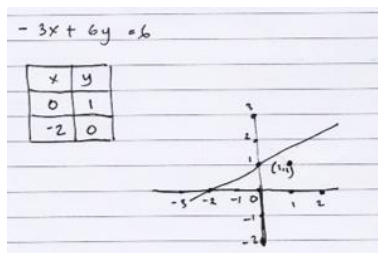 - 3x + 6y = 6
x y
0 1
-2 0
3
2
1
-3 -2 -1 0 1 2
-1
-2